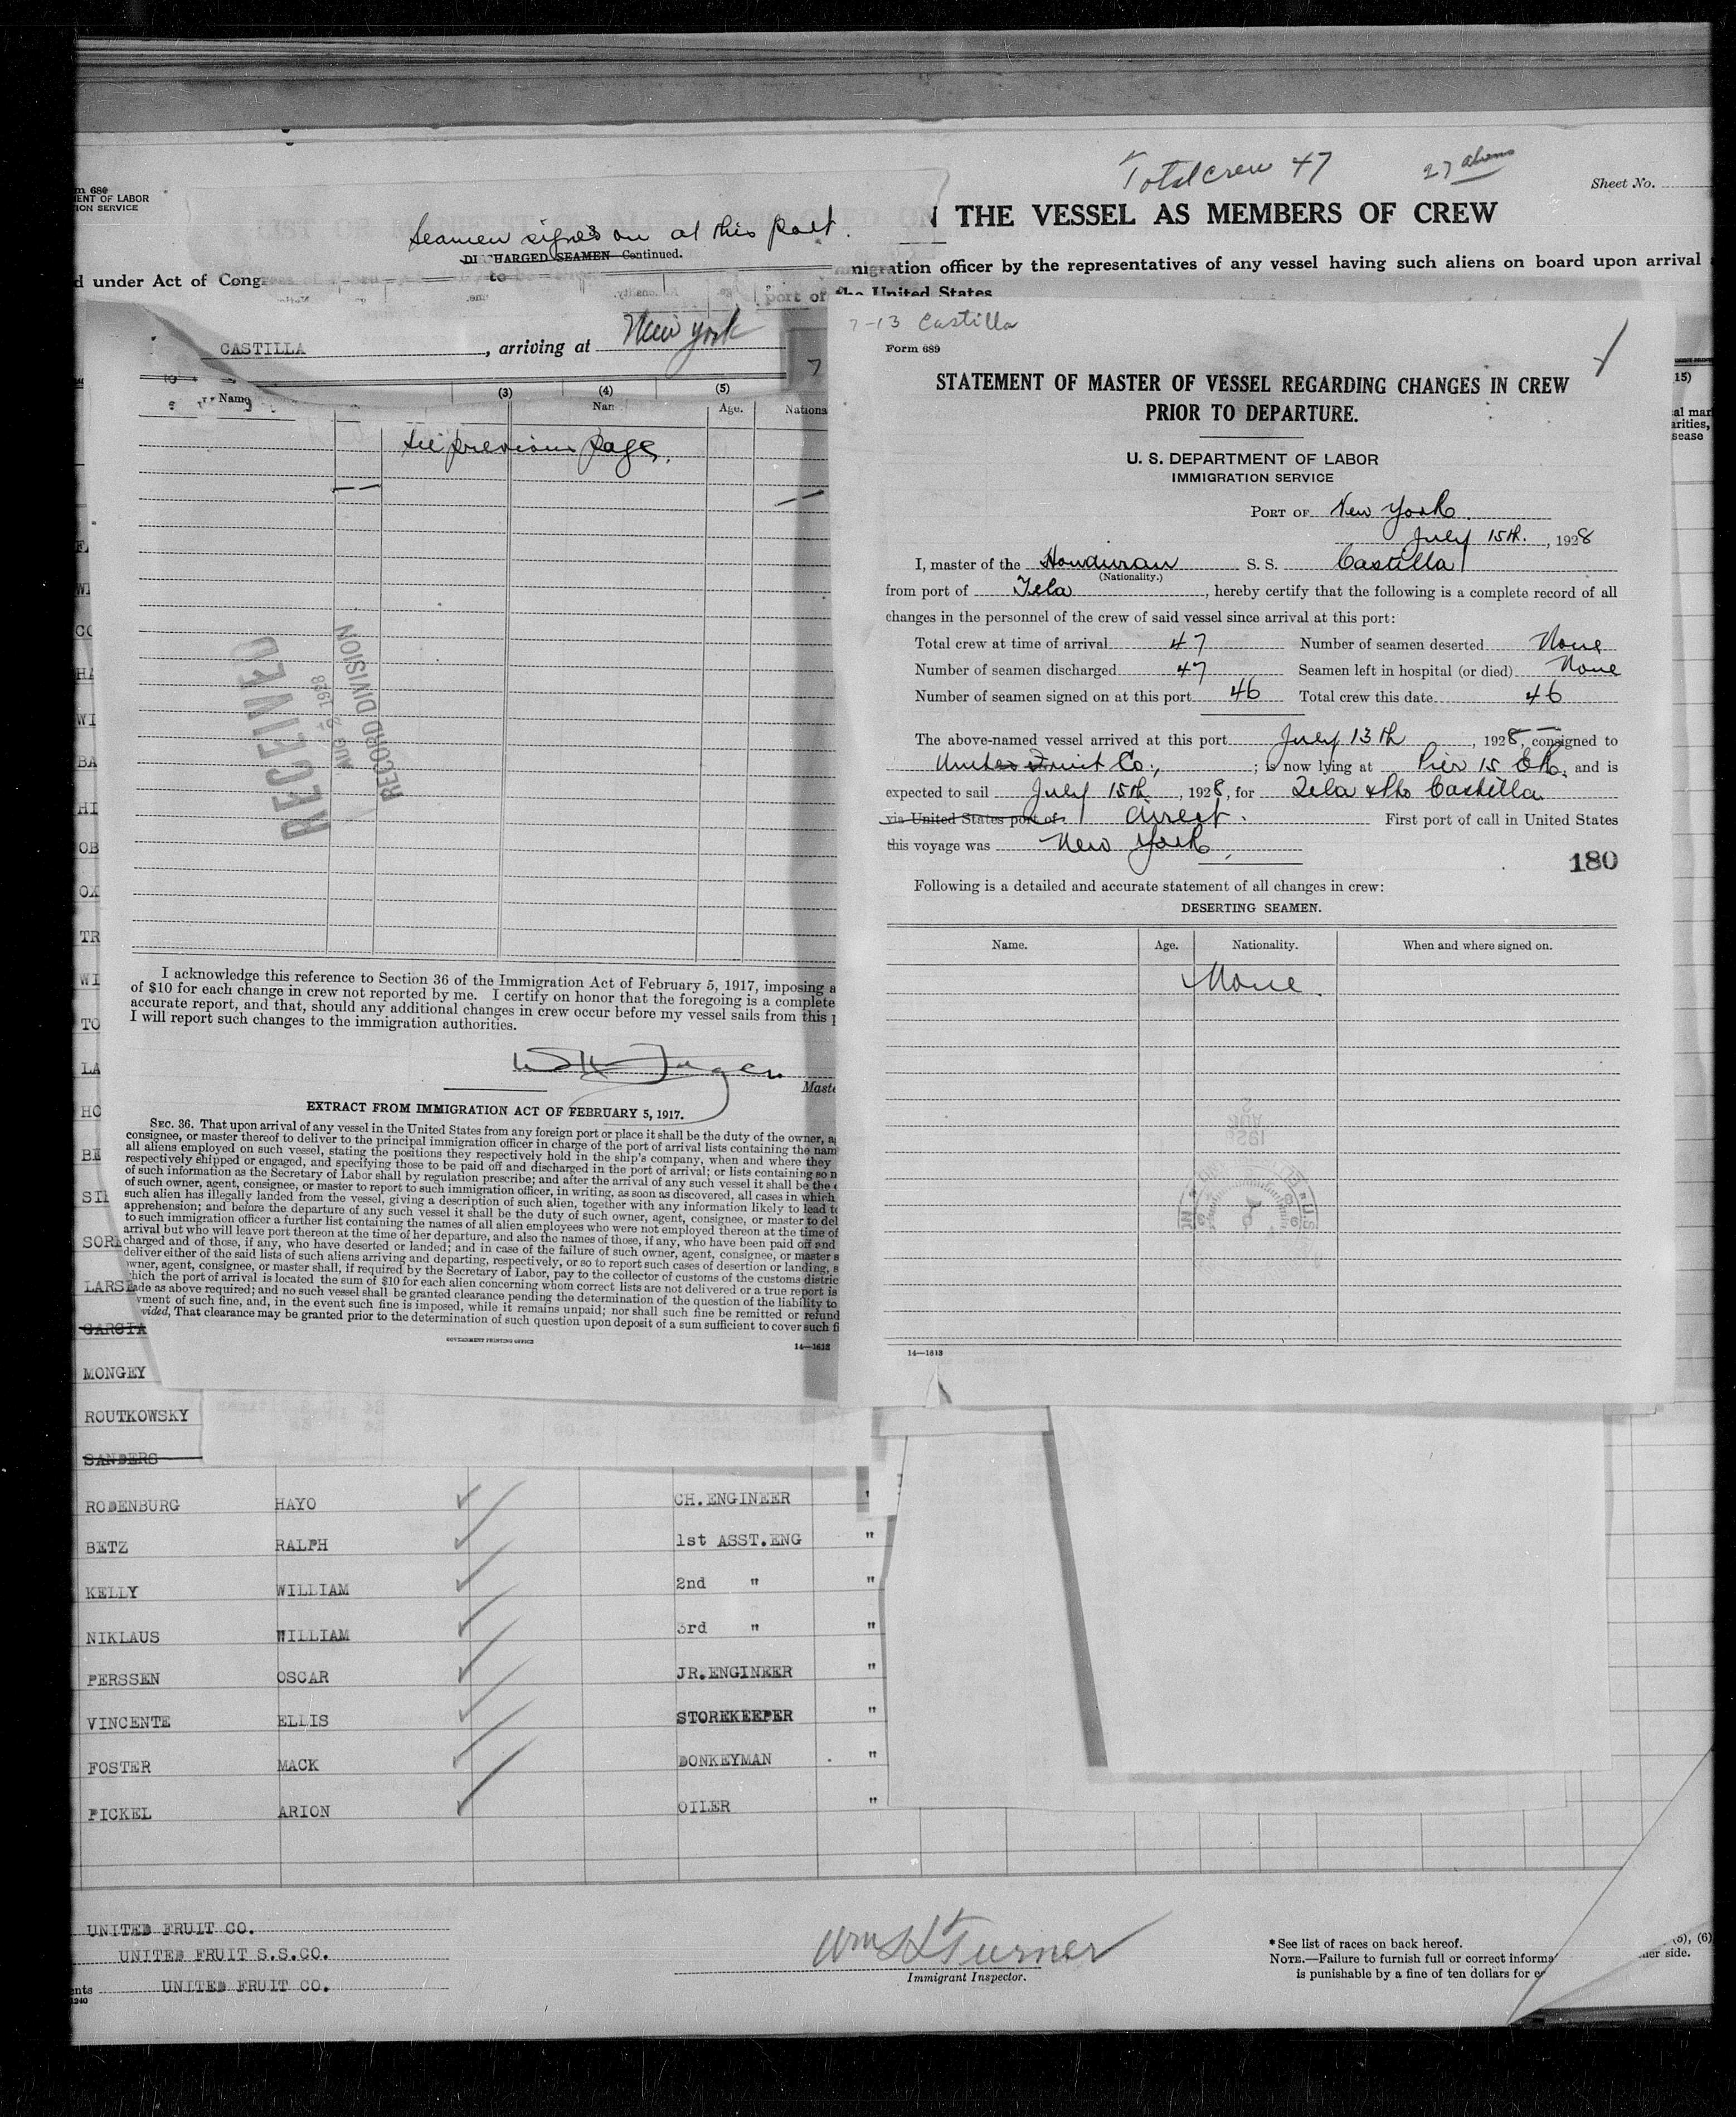 Total crew 47
27 aliens
Sheet No.
THE VESSEL AS MEMBERS OF CREW
m 689
ENT OF LABOR
ION SERVICE
Seamen signed on at this port.
DISCHARGED SEAMEN—Continued.
d under Act of Cong
to
migration officer by the representatives of any vessel having such aliens on board upon arrival
port of the United States
CASTILLA, arriving at New York
(3) (4) (5)
Name
Nam Age. Nationa
See previous page.
RECEIVED
AUG 2 1928
RECORD DIVISION
I acknowledge this reference to Section 36 of the Immigration Act of February 5, 1917, imposing a
of $10 for each change in crew not reported by me. I certify on honor that the foregoing is a complete
accurate report, and that, should any additional changes in crew occur before my vessel sails from this p
I will report such changes to the immigration authorities.
Maste
EXTRACT FROM IMMIGRATION ACT OF FEBRUARY 5, 1917.
SEC. 36. That upon arrival of any vessel in the United States from any foreign port or place it shall be the duty of the owner, a
consignee, or master thereof to deliver to the principal immigration officer in charge of the port of arrival lists containing the nam
all aliens employed on such vessel, stating the positions they respectively hold in the ship's company, when and where they
respectively shipped or engaged, and specifying those to be paid off and discharged in the port of arrival; or lists containing so m
of such information as the Secretary of Labor shall by regulation prescribe; and after the arrival of any such vessel it shall be the d
of such owner, agent, consignee, or master to report to such immigration officer, in writing, as soon as discovered, all cases in which
such alien has illegally landed from the vessel, giving a description of such alien, together with any information likely to lead to
apprehension; and before the departure of any such vessel it shall be the duty of such owner, agent, consignee, or master to del
to such immigration officer a further list containing the names of all alien employees who were not employed thereon at the time of
arrival but who will leave port thereon at the time of her departure, and also the names of those, if any, who have been paid off and
charged and of those, if any, who have deserted or landed; and in case of the failure of such owner, agent, consignee, or master s
deliver either of the said lists of such aliens arriving and departing, respectively, or so to report such cases of desertion or landing, s
owner, agent, consignee, or master shall, if required by the Secretary of Labor, pay to the collector of customs of the customs distric
hich the port of arrival is located the sum of $10 for each alien concerning whom correct lists are not delivered or a true report is
ade as above required; and no such vessel shall be granted clearance pending the determination of the question of the liability to
yment of such fine, and, in the event such fine is imposed, while it remains unpaid; nor shall such fine be remitted or refund
vided, That clearance may be granted prior to the determination of such question upon deposit of a sum sufficient to cover such fi
GOVERNMENT PRINTING OFFICE
14—1613
7-13 Castilla
Form 689
STATEMENT OF MASTER OF VESSEL REGARDING CHANGES IN CREW
PRIOR TO DEPARTURE.
U. S. DEPARTMENT OF LABOR
IMMIGRATION SERVICE
PORT OF New York.
July 15th., 1928
I, master of the Honduran S. S. Castilla
(Nationality.)
from port of Tela, hereby certify that the following is a complete record of all
changes in the personnel of the crew of said vessel since arrival at this port:
Total crew at time of arrival 47 Number of seamen deserted None
Number of seamen discharged 47 Seamen left in hospital (or died) None
Number of seamen signed on at this port 46 Total crew this date 46
The above-named vessel arrived at this port July 13th, 1928, consigned to
United Fruit Co.,; is now lying at Pier 15 ER, and is
expected to sail July 15th, 1928, for Tela & Pto Castilla
via United States port of direct. First port of call in United States
this voyage was New York.
180
Following is a detailed and accurate statement of all changes in crew:
DESERTING SEAMEN.
Name. Age. Nationality. When and where signed on.
None.
14—1613
15)
al mar
arities,
sease
WI
CO
HA
WI
BA
HI
OB
OX
TR
WI
TO
LA
HO
BE
SORE
LARSE
GARCIA
MONGEY
ROUTKOWSKY
SANDERS
RODENBURG HAYO CH.ENGINEER "
BETZ RALPH 1st ASST.ENG "
KELLY WILLIAM 2nd " "
NIKLAUS WILLIAM 3rd " "
PERSSEN OSCAR JR.ENGINEER "
VINCENTE ELLIS STOREKEEPER "
FOSTER MACK DONKEYMAN "
PICKEL ARION OILER "
UNITED FRUIT CO.
UNITED FRUIT S.S.CO.
ents UNITED FRUIT CO.
1240
Wm H Turner
Immigrant Inspector.
* See list of races on back hereof.
NOTE.—Failure to furnish full or correct informa
is punishable by a fine of ten dollars for e
(5), (6)
her side.